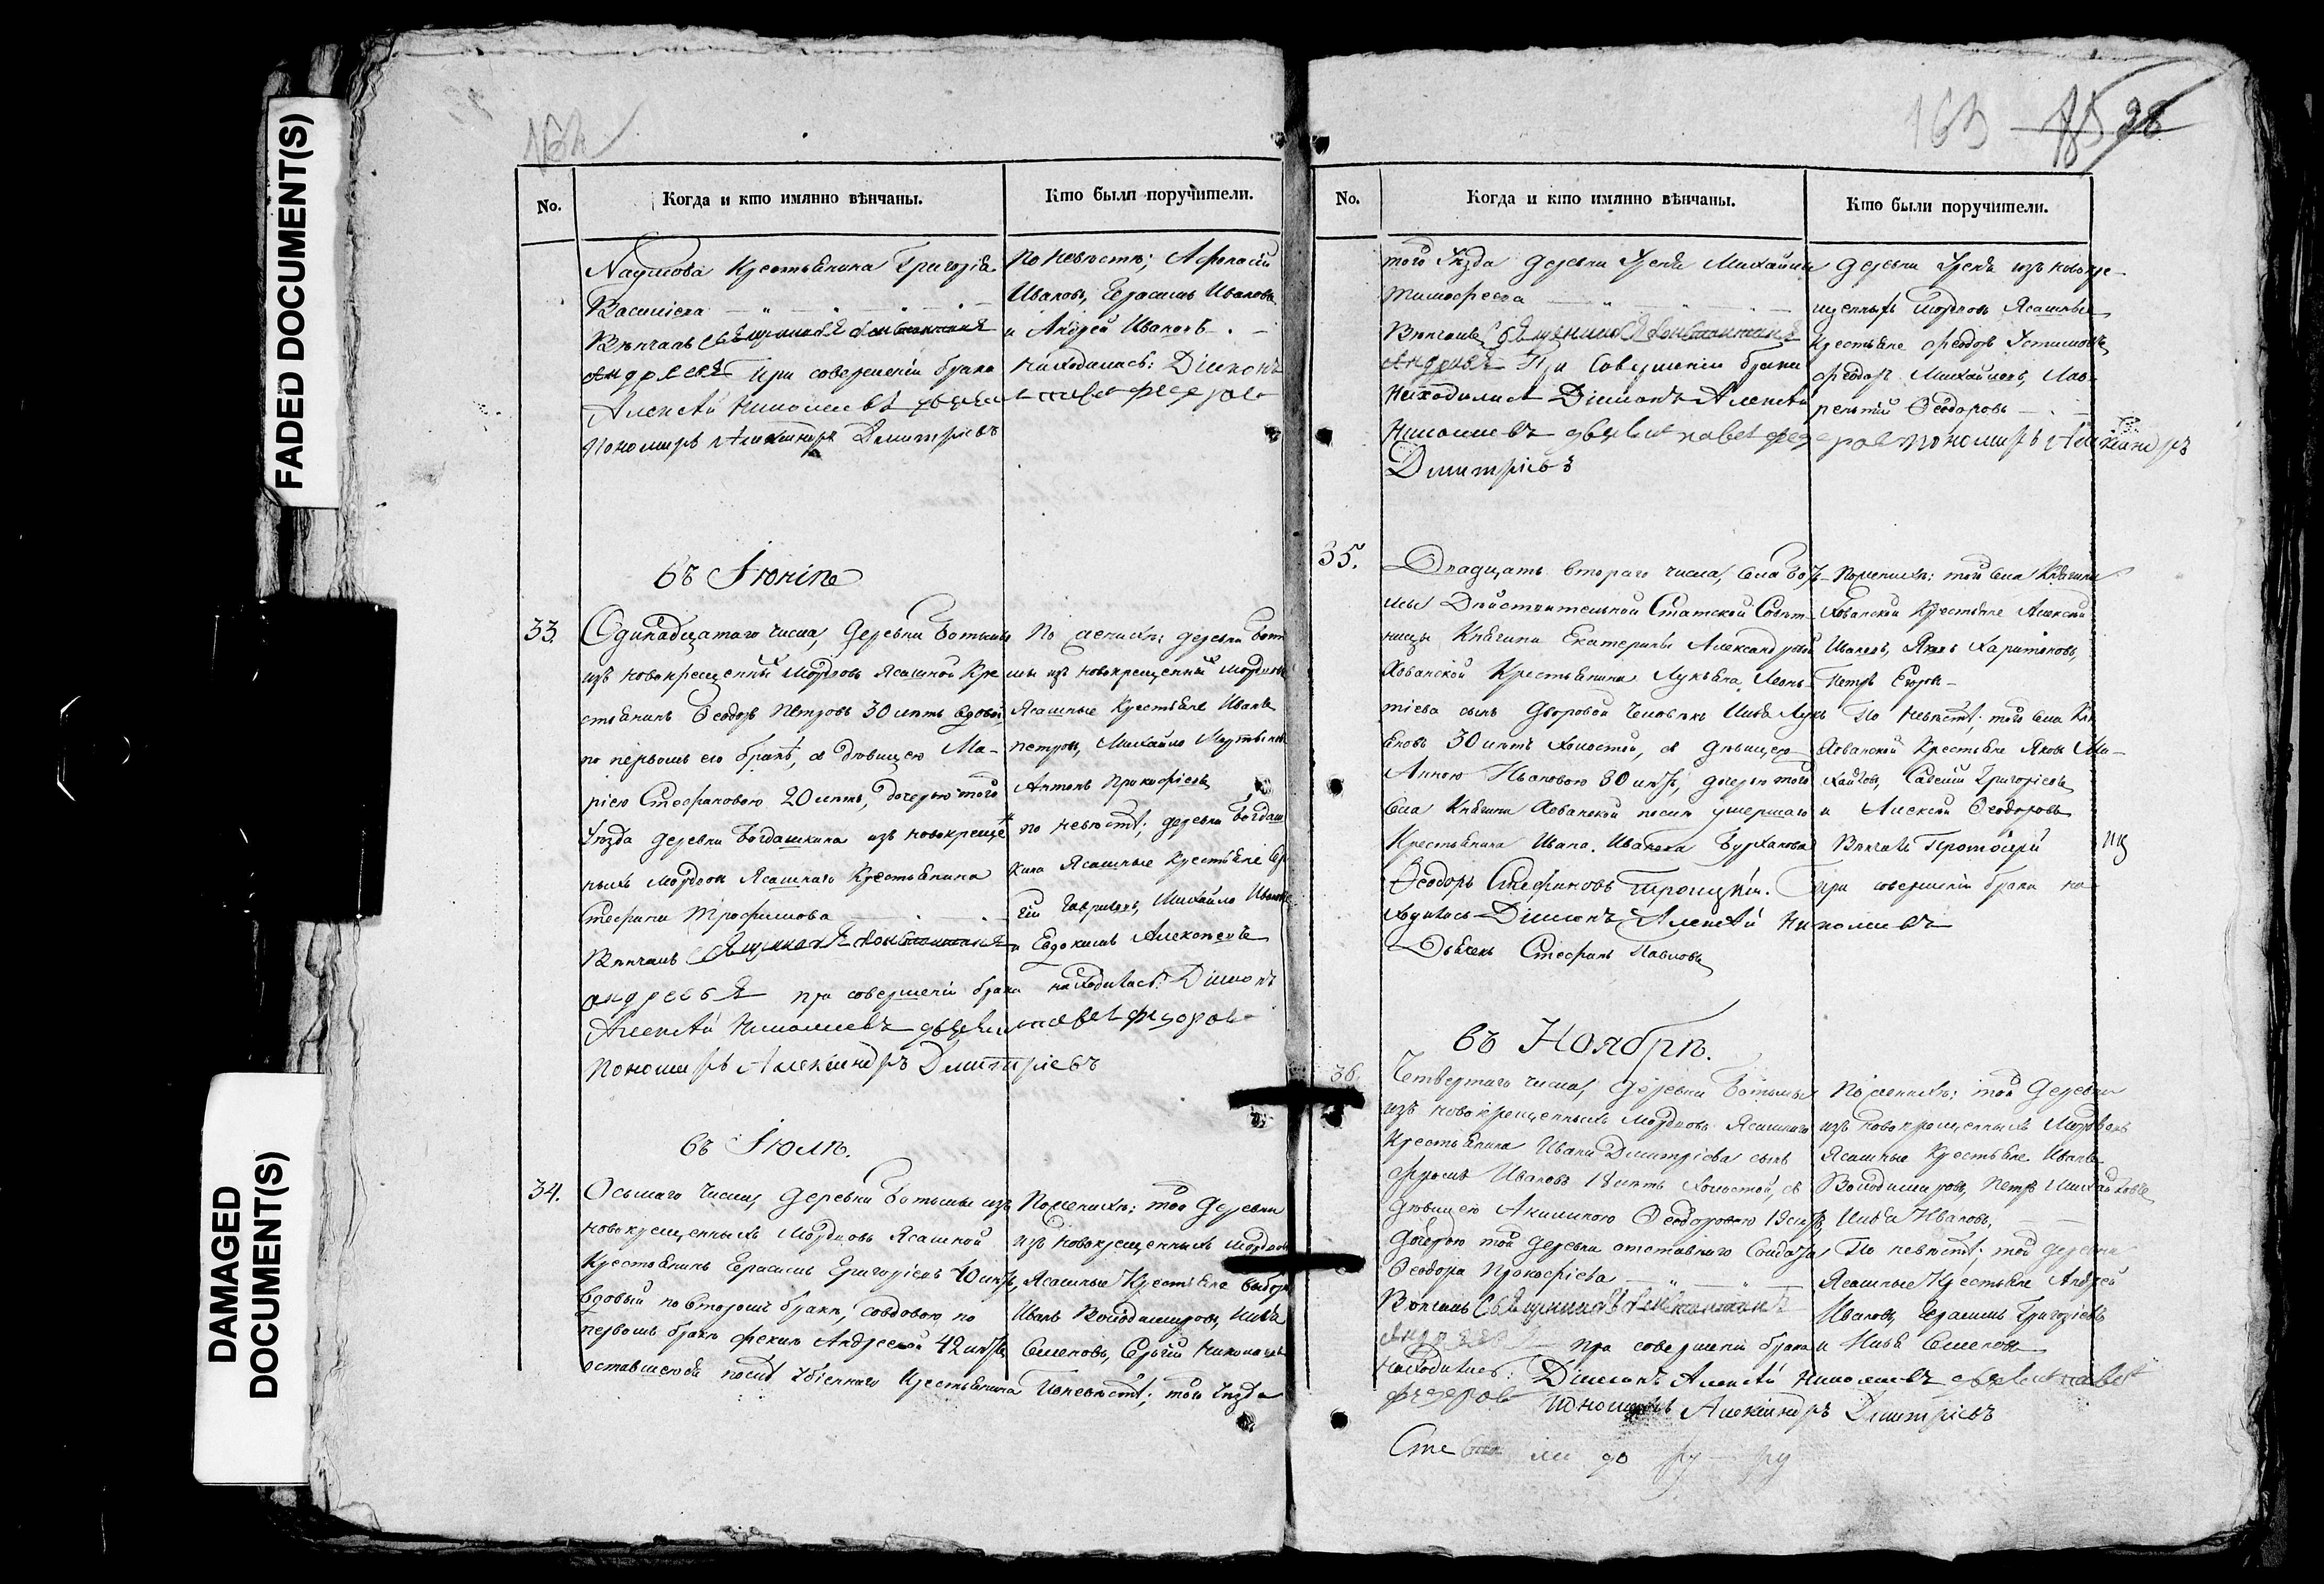 FADED DOCUMENT(S)
DAMAGED DOCUMENT(S)
No.
Когда и кто имянно вѣнчаны.
Кто были поручители.
Наумова крестьянина Григорія
Васильева
Вѣнчалъ священникъ Константинъ
Андреевъ при совершеніи брака
Алексѣй Николаевъ дьячекъ
Пономарь Александръ Димитріевъ
По невѣстѣ; Афонасій
Ивановъ, Герасимъ Ивановъ
и Андрей Ивановъ
находились: Діаконъ
Павелъ Федоровъ
въ Іюнѣ
33.
Одинадцатаго числа, деревни Ботьмы
изъ новокрещенныхъ Мордовъ Ясашной Кре
стьянинъ Ѳеодоръ Петровъ 30 лѣтъ вдовой
по первомъ его бракѣ, съ дѣвицею Ма-
ріею Стефановою 20 лѣтъ, дочерью того
Уѣзда деревни Богдашкина изъ новокреще
ныхъ Мордовъ Ясашнаго Крестьянина
Стефана Трофимова
Вѣнчалъ священникъ Константинъ
Андреевъ при совершеніи брака
Алексѣй Николаевъ дьячекъ
Пономарь Александръ Димитріевъ
По женихѣ: деревни Боть
мы изъ новокрещенныхъ Мордовъ
Ясашные Крестьяне Иванъ
Петровъ, Михайло Мартыновъ
Антонъ Прокофіевъ
по невѣстѣ; деревни Богдаш
кина Ясашные Крестьяне Сер
гій Гавриловъ, Михайло Ивановъ
и Евдокимъ Алексѣевъ
находились: Діаконъ
Павелъ Федоровъ
въ Іюлѣ.
34.
Осьмаго числа, деревни Ботьмы изъ
новокрещенныхъ Мордовъ Ясашной
Крестьянинъ Герасимъ Григорьевъ 40 лѣтъ,
вдовый по второмъ бракѣ, со вдовою по
первомъ бракѣ Феклою Андреевой 42 лѣтъ,
оставшеюся послѣ убіеннаго Крестьянина
По женихѣ: той деревни
изъ новокрещенныхъ Мордовъ
Ясашные Крестьяне
Иванъ Володимировъ, Илья
Семеновъ, Сергій Николаевъ
По невѣстѣ; того Уѣзда
163
No.
Когда и кто имянно вѣнчаны.
Кто были поручители.
того Уѣзда деревни Урень Михайлы
Тимофеева
Вѣнчалъ Священникъ Константинъ
Андреевъ При совершеніи брака
находились Діаконъ Алексѣй
Николаевъ дьячекъ Павелъ Федоровъ пономарь Александръ
Димитріевъ
деревни Урень изъ новокре
щенныхъ Мордовъ Ясашные
Крестьяне Феодоръ Устимовъ,
Феодоръ Михайловъ, Лав-
рентій Ѳеодоровъ
35.
Двадцать втораго числа, села Боть-
мы Дѣйствительной Статской Совѣт-
ницы Княгини Екатерины Александровой
Хованской Крестьянина Лукьяна Леонь-
тіева сынъ дворовой человѣкъ Илья Лукь
яновъ 30 лѣтъ холостой, съ дѣвицею
Анною Ивановою 30 лѣтъ, дочерью того
села Княгини Хованской послѣ умершаго
Крестьянина Ивана Иванова Бурханова
Ѳеодоръ Стефановъ Троицкій. При совершеніи брака на
ходились Діаконъ Алексѣй Николаевъ
Дьячекъ Стефанъ Павловъ
По женихѣ: того села Княгини
Хованской Крестьяне Алексѣй
Ивановъ, Яковъ Харитоновъ,
Петръ Егоровъ
По невѣстѣ; того села Кня
Хованской Крестьяне Яковъ Ми-
хайловъ, Савелій Григорьевъ
и Алексѣй Ѳеодоровъ
Вѣнчалъ Протоіерей
въ Ноябрѣ.
36.
Четвертаго числа, деревни Ботьмы
изъ новокрещенныхъ Мордовъ Ясашнаго
Крестьянина Ивана Димитріева сынъ
Фролъ Ивановъ 18 лѣтъ холостой, съ
дѣвицею Акилиною Ѳеодоровою 19 лѣтъ,
дочерью той деревни отставнаго Солдата
Ѳеодора Прокофіева
Вѣнчалъ Священникъ Константинъ
Андреевъ при совершеніи брака
находились: Діаконъ Алексѣй Николаевъ дьячекъ Павелъ
Федоровъ Пономарь Александръ Димитріевъ
По женихѣ: той деревни
изъ новокрещенныхъ Мордовъ
Ясашные Крестьяне Иванъ
Володимировъ, Петръ Михайловъ
Илья Ивановъ,
По невѣстѣ: той деревни
Ясашные Крестьяне Андрей
Ивановъ, Герасимъ Григорьевъ
и Илья Семеновъ